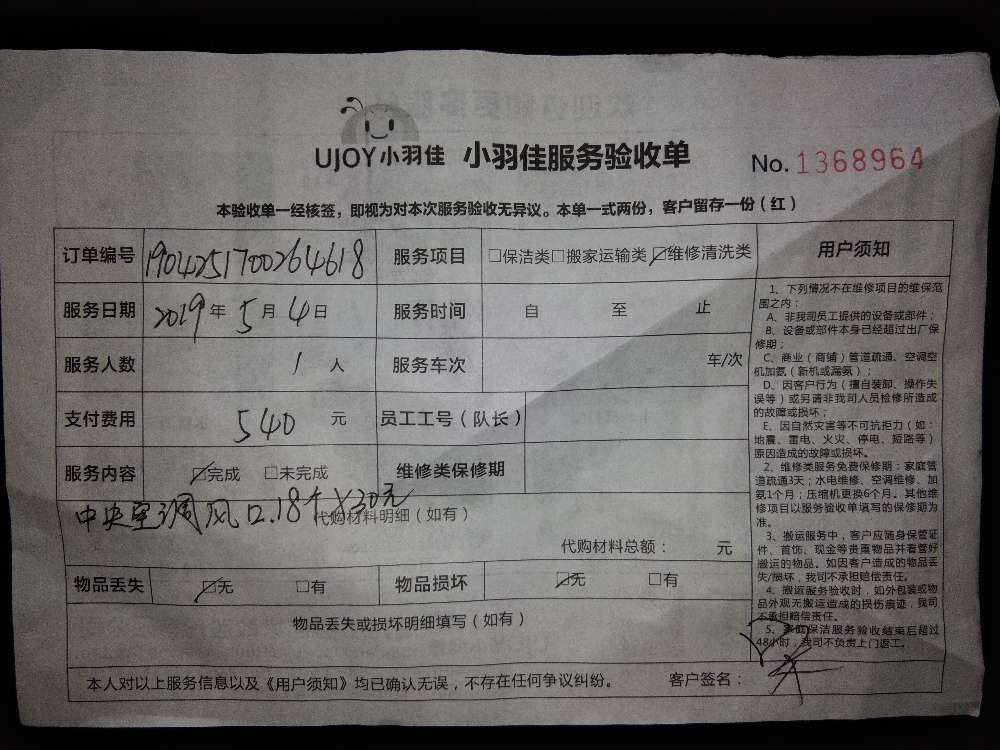 UJOY小羽佳 小羽佳服务验收单 No.1368964
本验收单一经核签，即视为对本次服务验收无异议。本单一式两份，客户留存一份（红）
订单编号 190425170026​4618 服务项目 □保洁类□搬家运输类☑维修清洗类
服务日期 2019年5月4日 服务时间 自 至 止
服务人数 1人 服务车次 车/次
支付费用 540元 员工工号（队长）
服务内容 ☑完成 □未完成 维修类保修期
中央空调风口.18个X30元
代购材料明细（如有）
代购材料总额： 元
物品丢失 ☑无 □有 物品损坏 ☑无 □有
物品丢失或损坏明细填写（如有）
本人对以上服务信息以及《用户须知》均已确认无误，不存在任何争议纠纷。 客户签名：
用户须知
1、下列情况不在维修项目的维保范
围之内：
A、非我司员工提供的设备或部件；
B、设备或部件本身已经超过出厂保
修期；
C、商业（商铺）管道疏通、空调空
机加氨（新机或漏氨）；
D、因客户行为（擅自装卸、操作失
误等）或另请非我司人员检修所造成
的故障或损坏；
E、因自然灾害等不可抗拒力（如：
地震、雷电、火灾、停电、短路等）
原因造成的故障或损坏。
2、维修类服务免费保修期：家庭管
道疏通3天；水电维修、空调维修、加
氨1个月；压缩机更换6个月。其他维
修项目以服务验收单填写的保修期为
准。
3、搬运服务中，客户应随身保管证
件、首饰、现金等贵重物品并看管好
搬运的物品。如因客户造成的物品丢
失/损坏，我司不承担赔偿责任。
4、搬运服务验收时，如外包装或物
品外观无搬运造成的损伤痕迹，我司
不承担赔偿责任。
5、家庭保洁服务验收结束后超过
48小时，我司不负责上门返工。